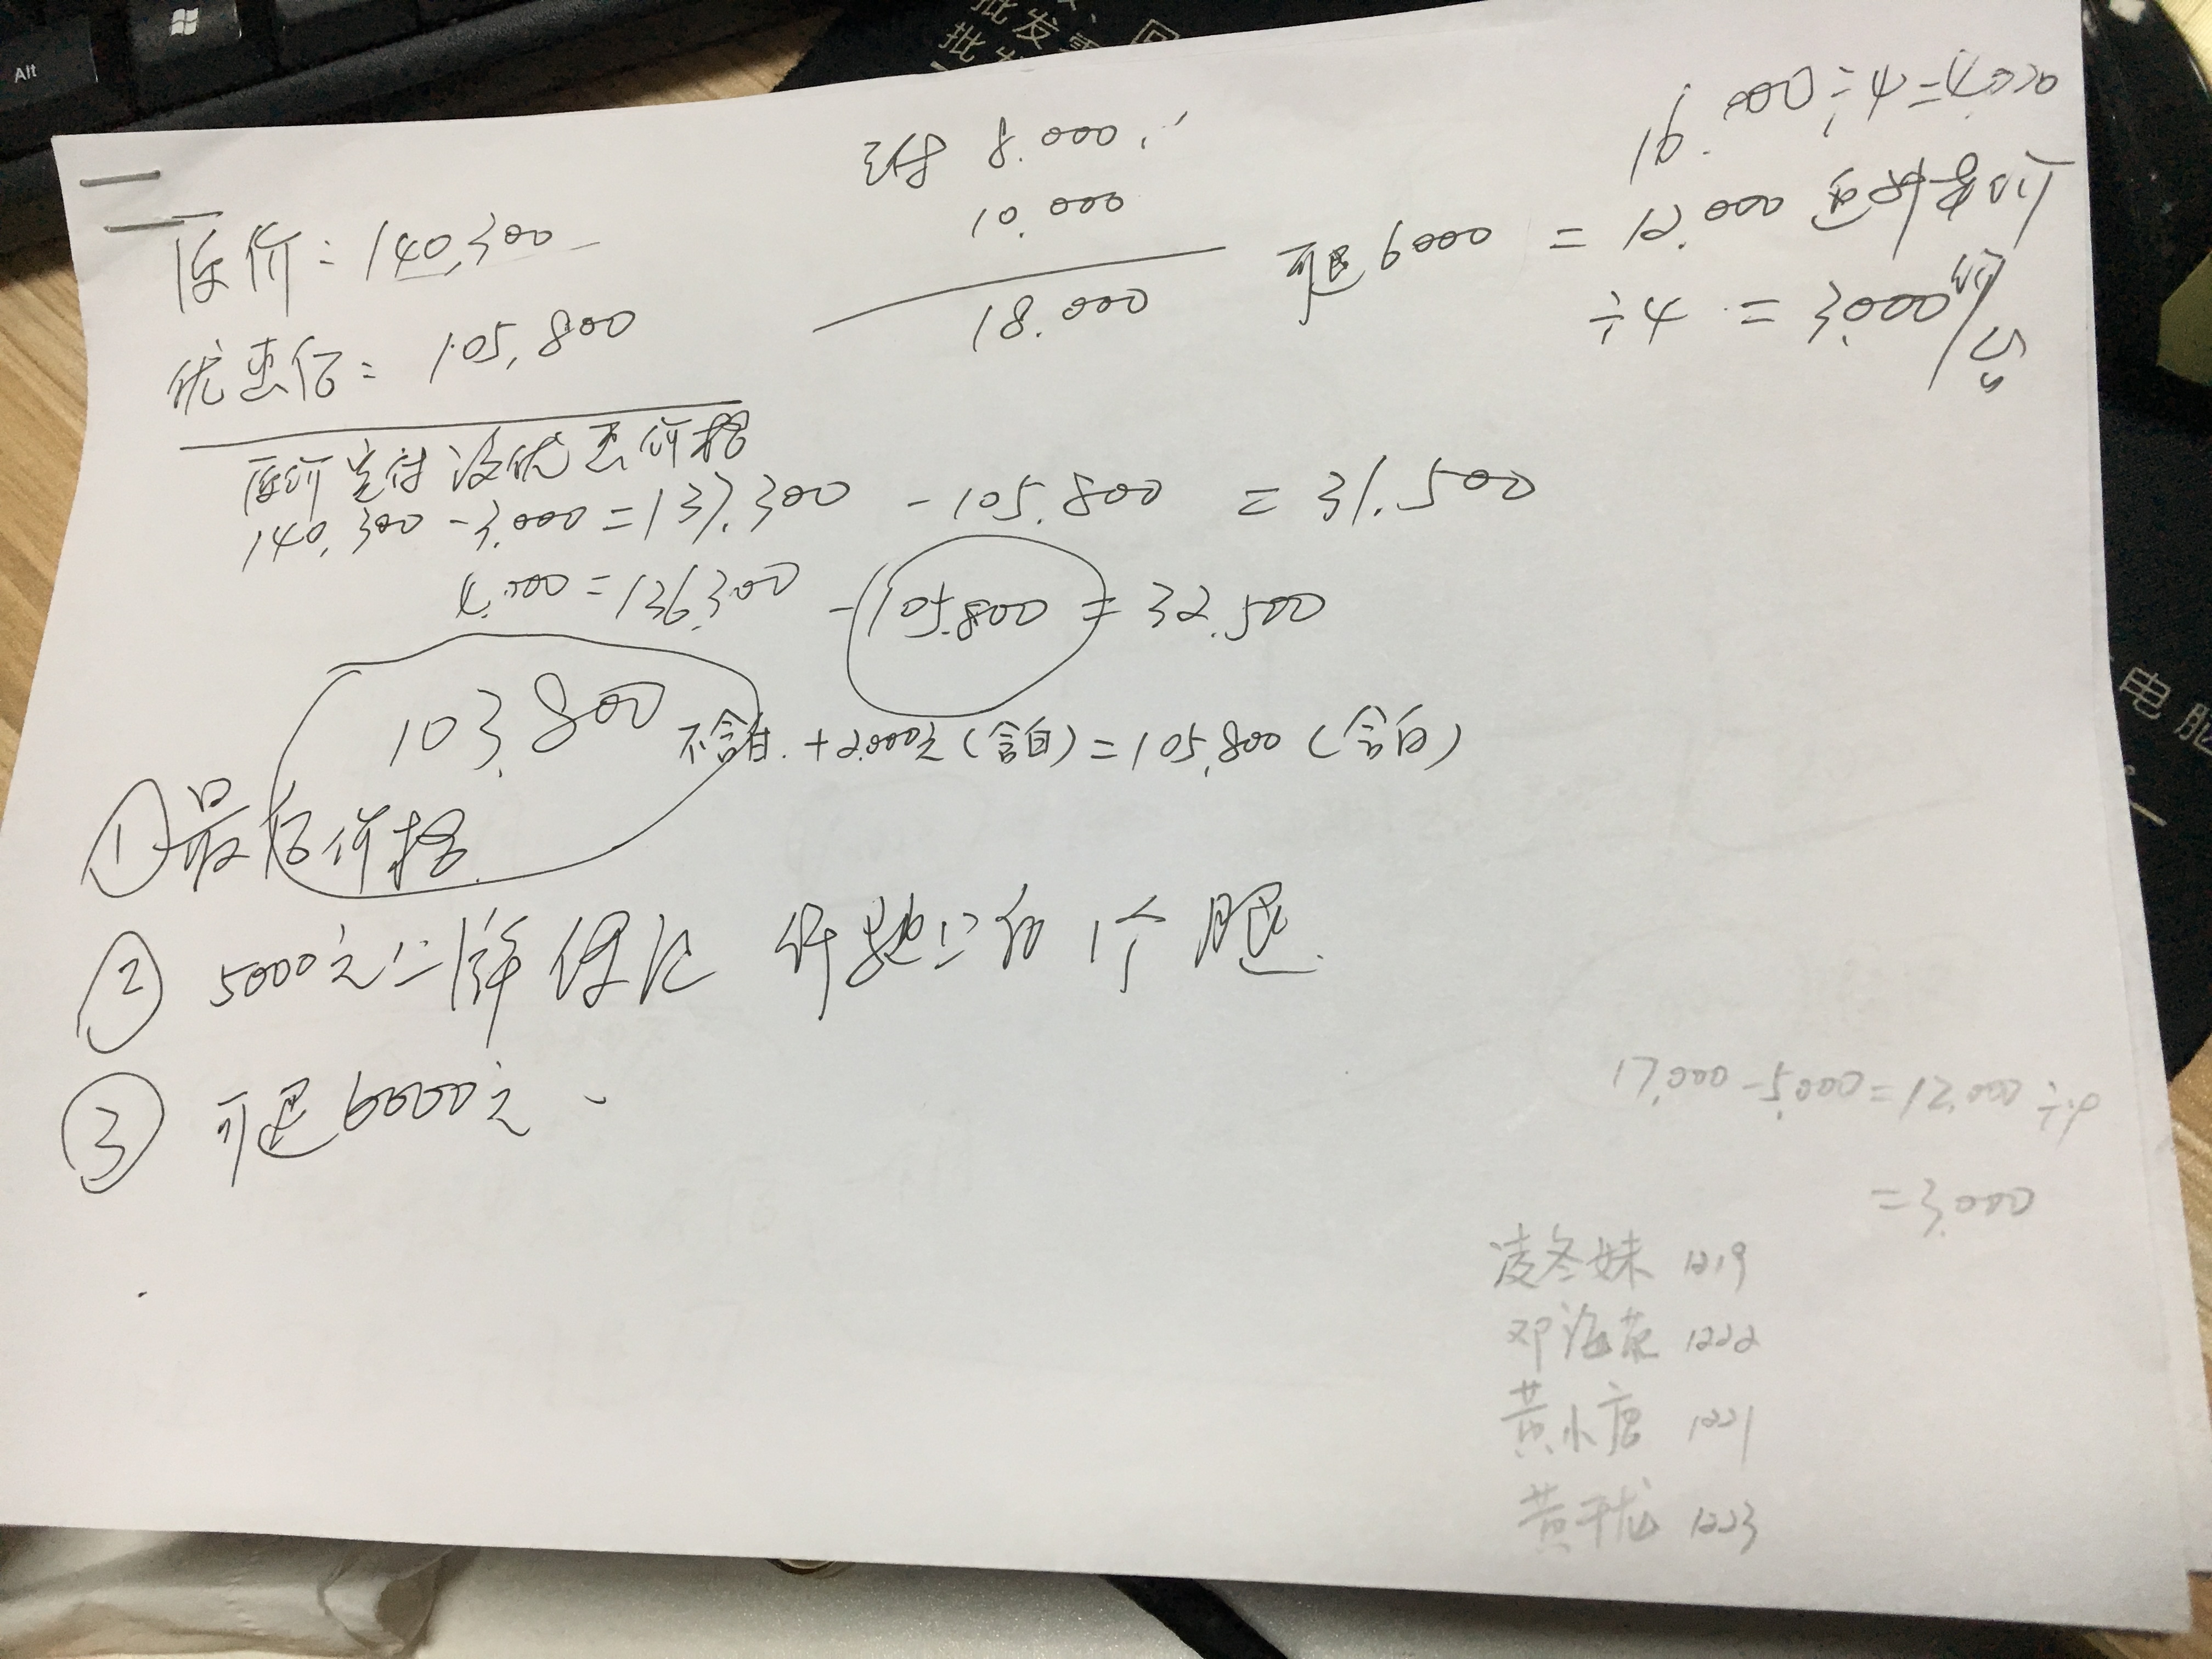 Alt
批发零
16.000÷4=4000
已付 8.000
10.000
18.000
可退6000 = 12.000
÷4 = 3.000
原价: 140,300
优惠后: 105,800
原价 没优惠价格
140,300 - 3.000 = 137.300 - 105.800 = 31.500
4.000 = 136,300 - 105.800 = 32.500
103,800 不含白. +2.000元(含白) = 105,800 (含白)
① 最后价格
② 5000元 1个腿.
③ 可退6000元.
电脑
17,000 - 5,000 = 12,000 ÷4
= 3,000
凌冬妹 1219
邓海英 1222
黄小唐 1221
黄干龙 1223